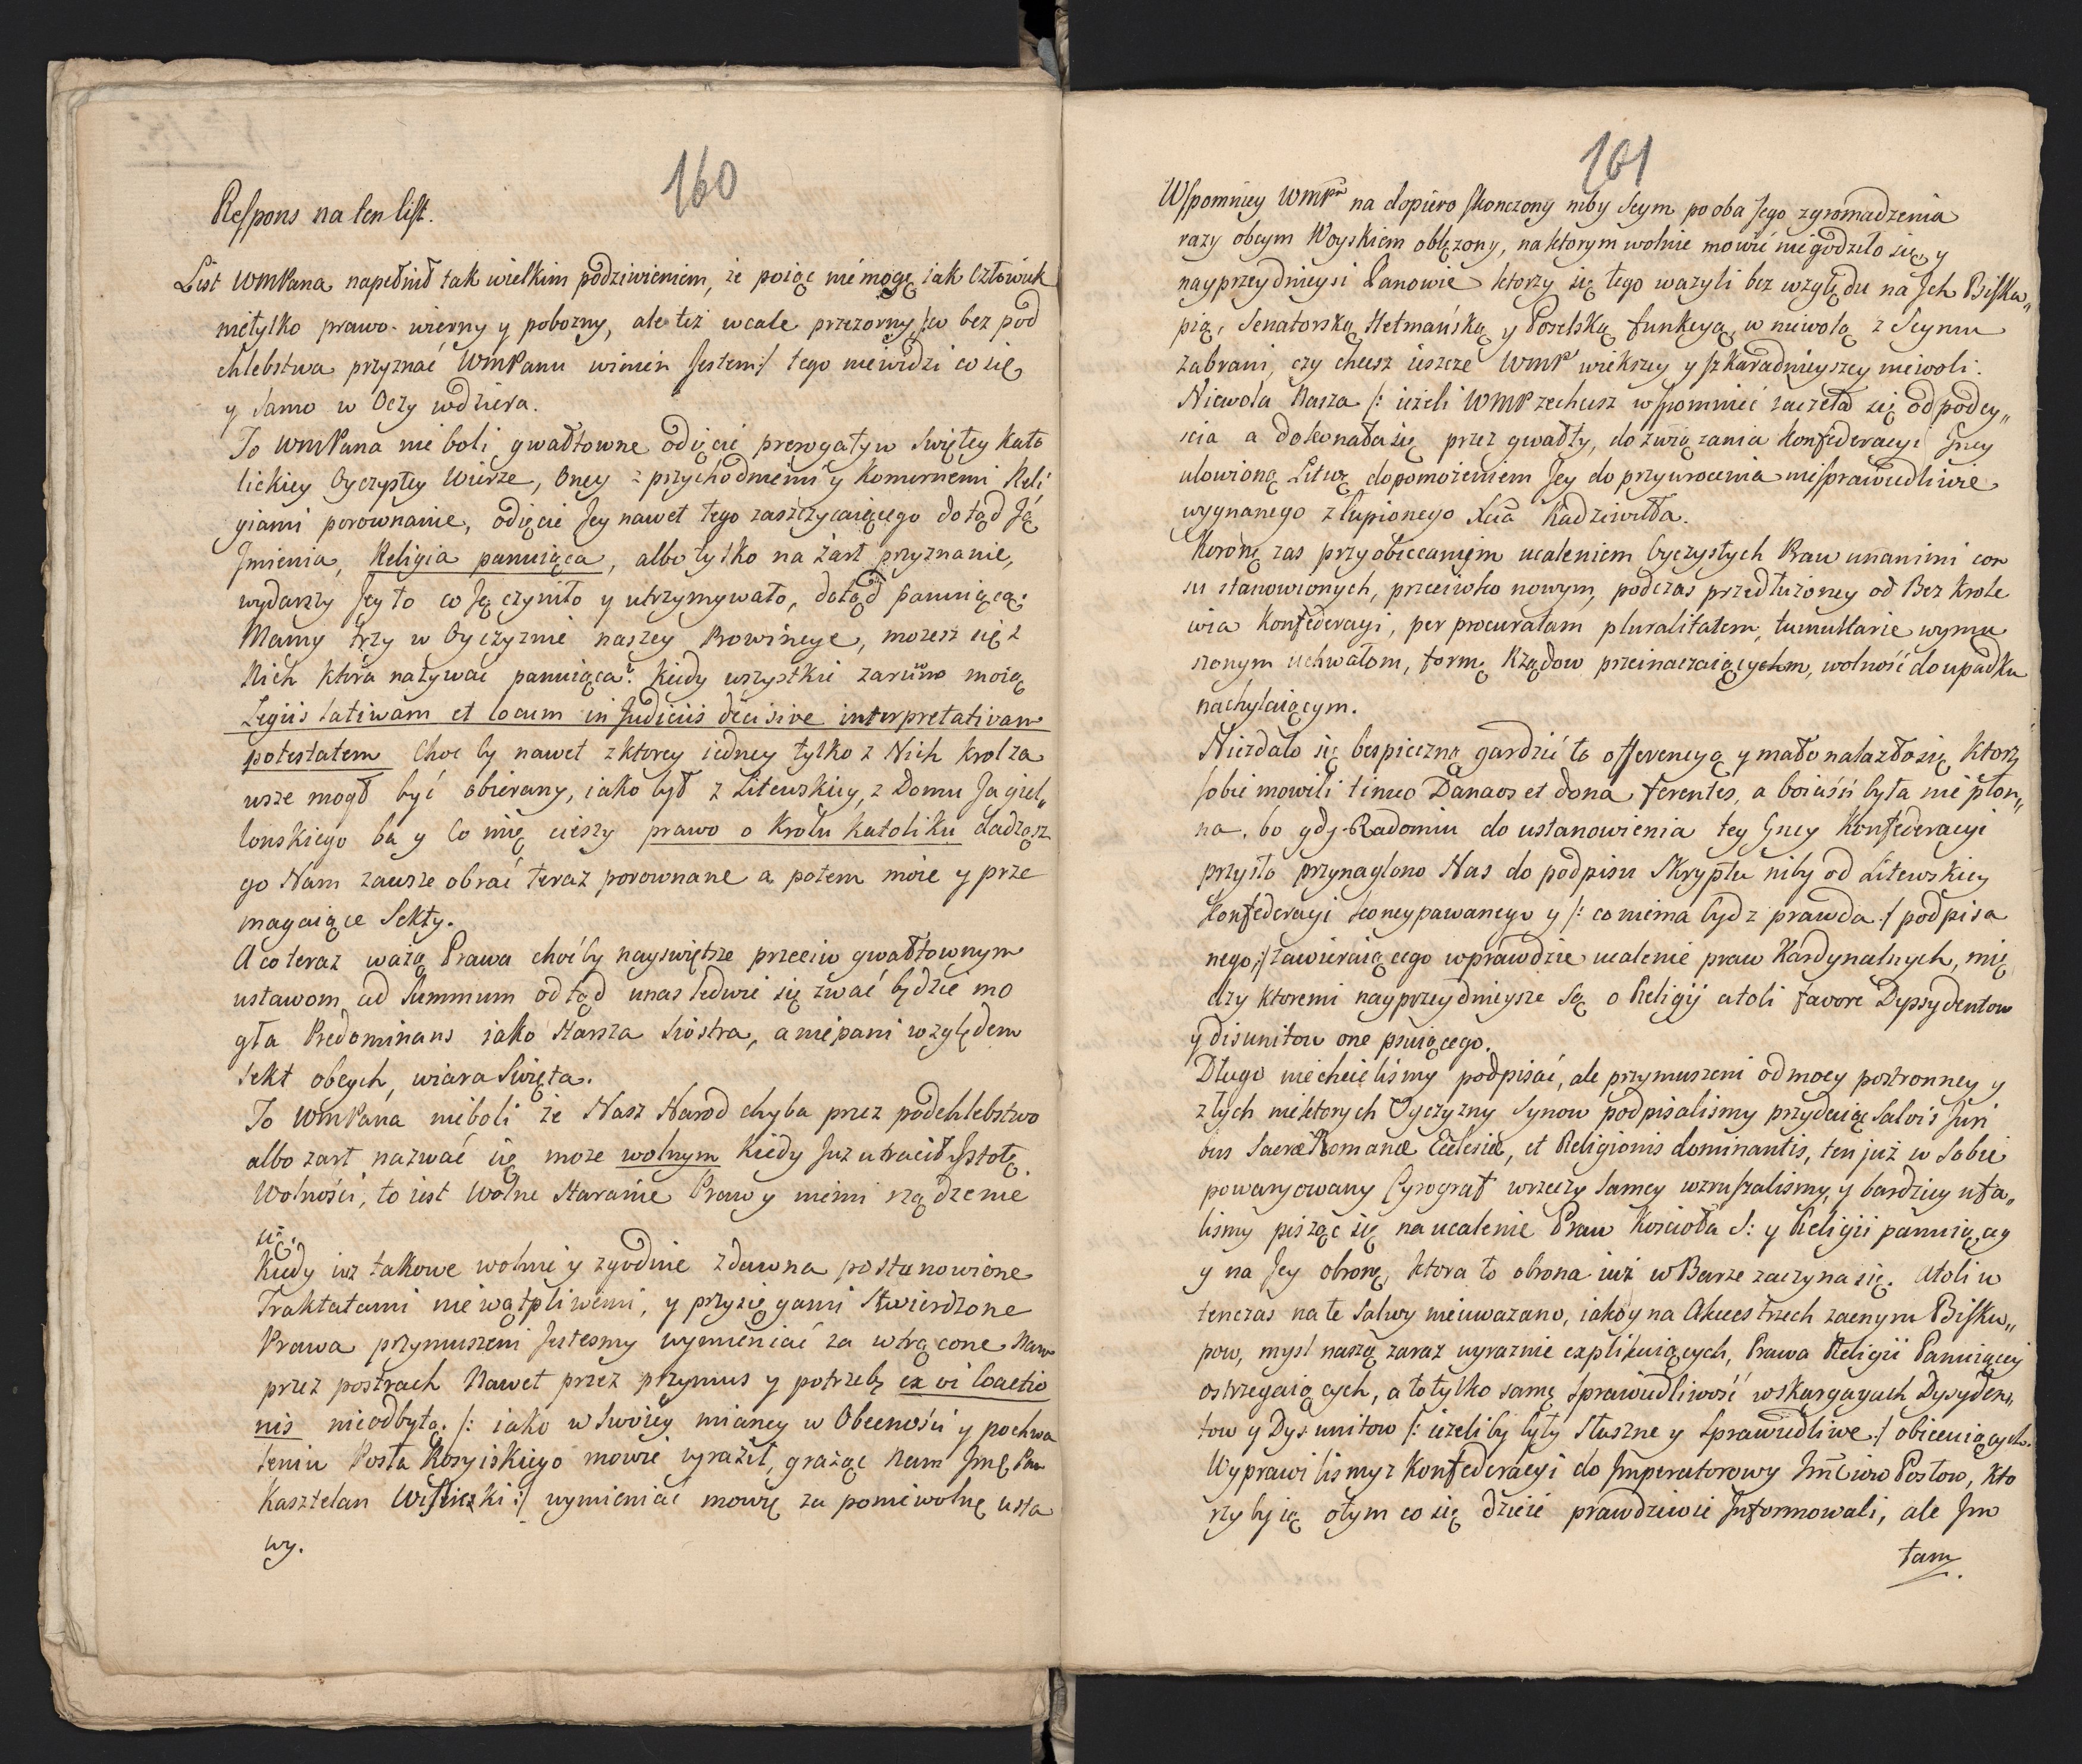 160
Respons na ten list.
List WMPana napełnił tak wielkim podziwieniem, że poiąc niemogę jak Człowiek
nietylko prawo-wierny y pobozny, ale też wcale przezorny /:co bez pod
chlebstwa przyznać WMPanu winien Jestem:/ tego niewidzi co się
y samo w Oczy wdziera.
To WMPana nie boli gwałtowne odięcie prerogatyw Swiętey Kato
lickiey Oyczystey Wierze, Oney z przychodniemi y Komornemi Reli
giami porownanie, odięcie Jey nawet tego zaszczycaiącego dotąd Ją
Jmienia, Religia panuiąca, albo tylko na żart przyznanie,
wydarszy Jey to co Ją czyniło y utrzymywało, dotąd panuiącą.
Mamy trzy w Oyczyznie naszey Prowincye, mozesz się z
Nich ktora nazywać panuiąca? Kiedy wszystkie zarowno moią
Legiis lativam et locum in Judiciis decisive interpretativam
potestatem Choc by nawet z ktorey iedney tylko z Nich Krol za
wsze mogł być obierany, iako był z Litewskiey, z Domu Jagiel„
lonskiego ba y Co mię cieszy prawo o Krolu Katoliku dadzą z
go Nam zawsze obrać teraz porownane a potem moie y prze
magaiące Sekty.
A co teraz ważą Prawa choćby nayswiętsze przeciw gwałtownym
ustawom, ad Summum odtąd unas ledwie się zwać będzie mo
gła Predominans iako starsza Siostra, a niepani względem
sekt obcych, wiara Swięta.
To WMPana nieboli że Nasz Narod chyba przez podchlebstwo
albo zart nazwać się moze wolnym Kiedy Juz utracił Jstotę
Wolności, to iest Wolne Staranie Praw y niemi rządzenie
się.
Kiedy iuz takowe wolnie y zgodnie zdawna postanowione
Traktatami niewątpliwemi, y przysięgami Stwierdzone
Prawa przymuszeni Jestesmy wymieniać za wtrącone Nam
przez postrach Nawet przez przymus y potrzebę ex vi Coactio
nis nieodbytą. /: iako w Swoiey mianey w Obecności y pochwa
leniu Posła Rosyiskiego mowie wyraził, grażąc Nam Jmę Pan
Kasztelan Wislicki :/ wymieniać mowię za poniewolne usta
wy.
161
Wspomniey WMPn na dopiero skonczony niby Seym po oba Jego zgromadzenia
razy obcym Woyskiem oblężony, na ktorym wolnie mowić niegodziło się, y
nayprzednieysi Panowie ktorzy się tego wazyli bez względu na Jch Bisku„
pią, Senatorską Hetmańską y Poselską funkcyą, w niewolą z Seymu
zabrani, czy chcesz ieszcze WMP większey y szkaradnieyszey niewoli.
Niewola Nasza /: ieżeli WMP zechcesz wspomnieć zaczeła się od podey„
scia a dokonała się przez gwałty, do związania Konfederacyi Gney
ulowioną Litwę dopomożeniem Jey do przywrocenia niesprawiedliwie
wygnanego złupionego Xcia Radziwiłła.
Koronę zas przyobiecanym ucaleniem Oyczystych Praw unanimi con
su stanowionych, przeciwko nowym, podczas przedłużoney od Bez Krole
wia Konfederacyi, per procuratam pluralitatem, tumultarie wymu
szonym uchwałom, formę Rządow przeinaczaiącym, wolność do upadku
nachylaiącym.
Niezdało się bespieczną gardzić tą offerencyą y mało nalazło się ktorzy
sobie mowili timeo Danaos et dona ferentes, a boiaźń była nie płon„
na, bo gdy Radomiu do ustanowienia tey Gney Konfederacyi
przyszło przynaglono Nas do podpisu Skryptu niby od Litewskiey
Konfederacyi koncypowanego y /: co niema bydz prawda :/ podpisa
nego, zawieraiącego wprawdzie ucalenie praw Kardynalnych, mię
dzy ktoremi nayprzednieysze Są o Religij atoli favore Dyssydentow
y disunitow one psuiącego.
Długo niechcieliśmy podpisać, ale przymuszeni od mocy postronney y
złych niektorych Oyczyzny Synow podpisalismy przydaiąc Salvis Juri
bus Sacræ Romanæ Ecclesiæ, et Religionis dominantis, ten już w Sobie
powaryowany Cyrograf wrzeczy samey wzruszalismy, y bardziey ufa„
liśmy pisząc się na ucalenie Praw Kosciola S: y Religii panuiącey
y na Jey obronę, ktora to obrona iuż w Barze zaczyna się. Atoli w
tenczas na te Salwy nieuwazano, iako y na Akces trzech zacnym Bisku„
pow, mysl naszą zaraz wyraznie explikuiących, Prawa Religii Panuiącey
ostrzegaiących, a to tylko samę Sprawiedliwość wskargagach Dysyden„
tow y Dysunitow /: ieżeliby były Słuszne y Sprawiedliwe :/ obiecuiących.
Wyprawilismy z Konfederacyi do Jmperatorowy Jmciow Posłow, Kto
rzy by ią o tym co się dzieie prawdziwie Jnformowali, ale Jm
tam